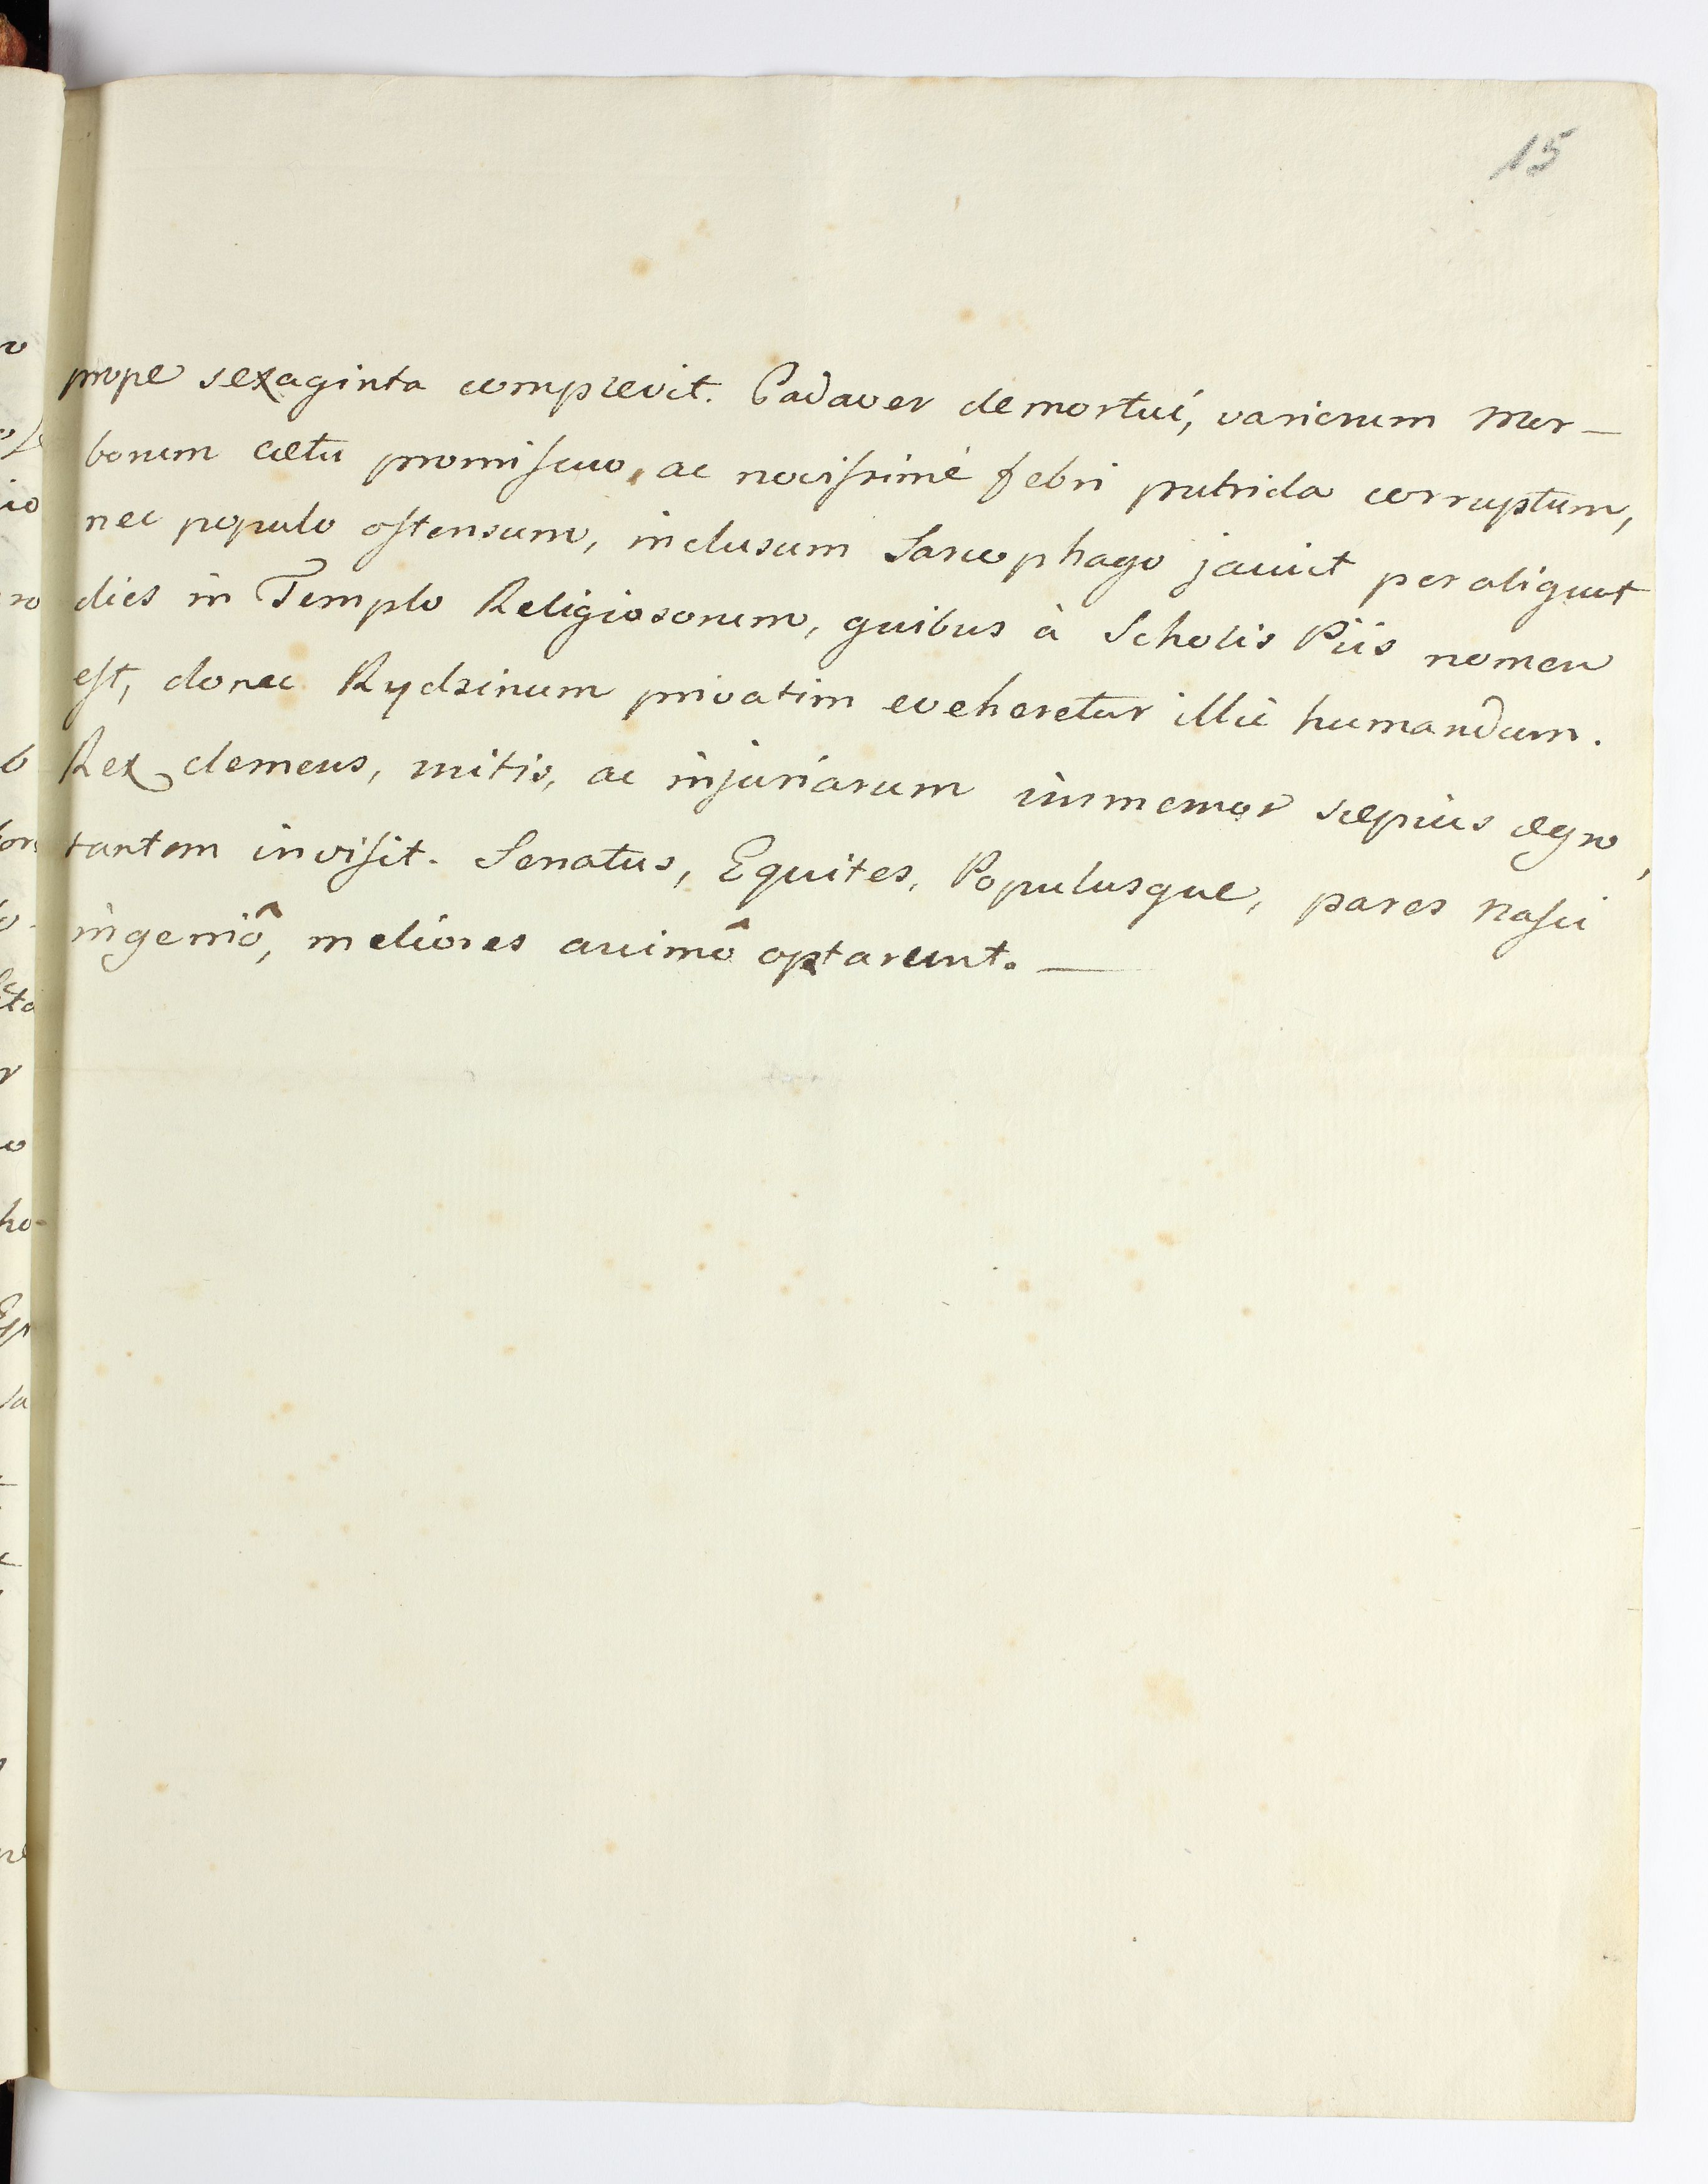 15
prope sexaginta complevit. Cadaver demortui, variorum mor-
borum cœtu promiscuo, ac novissimè febri putrida corruptum,
nec populo ostensum, inclusum Sarcophago jacuit per aliquot
dies in Templo Religiosorum, quibus à Scholis Piis nomen
est, donec Rydzinum privatim eveheretur illic humandum.
Rex clemens, mitis, ac injuriarum immemor sæpius ægro,
tantem invisit. Senatus, Equites, Populusque, pares nasci
ingeniô, meliores animô optarunt. —